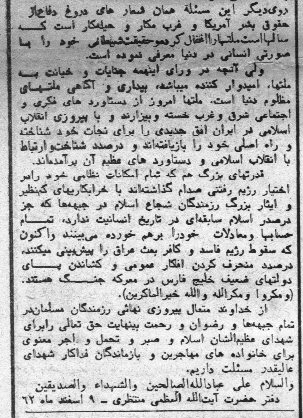 روی‌دیگر این مسئله همان شعار های دروغ دفاع‌از
حقوق بشر آمریکا و غرب مکار و حیله‌کار است که
سالهاست ملتها را اغفال کرده و حقیقت شیطانی خود را با
صورتی انسانی در دنیا معرفی نموده است.
ولی آنچه در ورای اینهمه جنایات و خیانت به
ملتها، امیدوار کننده میباشد، بیداری و آگاهی ملتهای
مظلوم دنیا است. ملتها امروز از دستاورد های فکری و
اجتماعی شرق و غرب خسته و بیزارند و با پیروزی انقلاب
اسلامی در ایران افق جدیدی را برای نجات خود شناخته
و راه اصلی خود را بازیافته‌اند و درصدد شناخت و ارتباط
با انقلاب اسلامی و دستاورد های عظیم آن برآمده‌اند.
قدرتهای بزرگ هم که تمام امکانات نظامی خود را در
اختیار رژیم رفتنی صدام گذاشته‌اند با خرابکاریهای کم‌نظیر
و ایثار بزرگ رزمندگان شجاع اسلام در جبهه‌ها که جز
درصدر اسلام سابقه‌ای در تاریخ انسانیت ندارد، تمام
حسابها و معادلات خود را برهم خورده می‌بینند و اکنون
که سقوط رژیم فاسد و کافر بعث عراق را پیش‌بینی میکنند،
درصدد منحرف کردن افکار عمومی و کشاندن پای
دولتهای ضعیف خلیج فارس در معرکه جنگ هستند.
(ومکروا ومکرالله والله خیرالماکرین).
از خداوند متعال پیروزی نهائی رزمندگان مسلمان در
تمام جبهه‌ها و رضوان و رحمت بینهایت حق تعالی را برای
شهدای عظیم‌الشان اسلام و صبر و تحمل و اجر معنوی
برای خانواده های مهاجرین و بازماندگان فداکار شهدای
عالیقدر مسئلت داریم.
والسلام علی عبادالله‌الصالحین والشهداء والصدیقین
دفتر حضرت آیت الله العظمی منتظری - ۹ اسفند ماه ۶۲